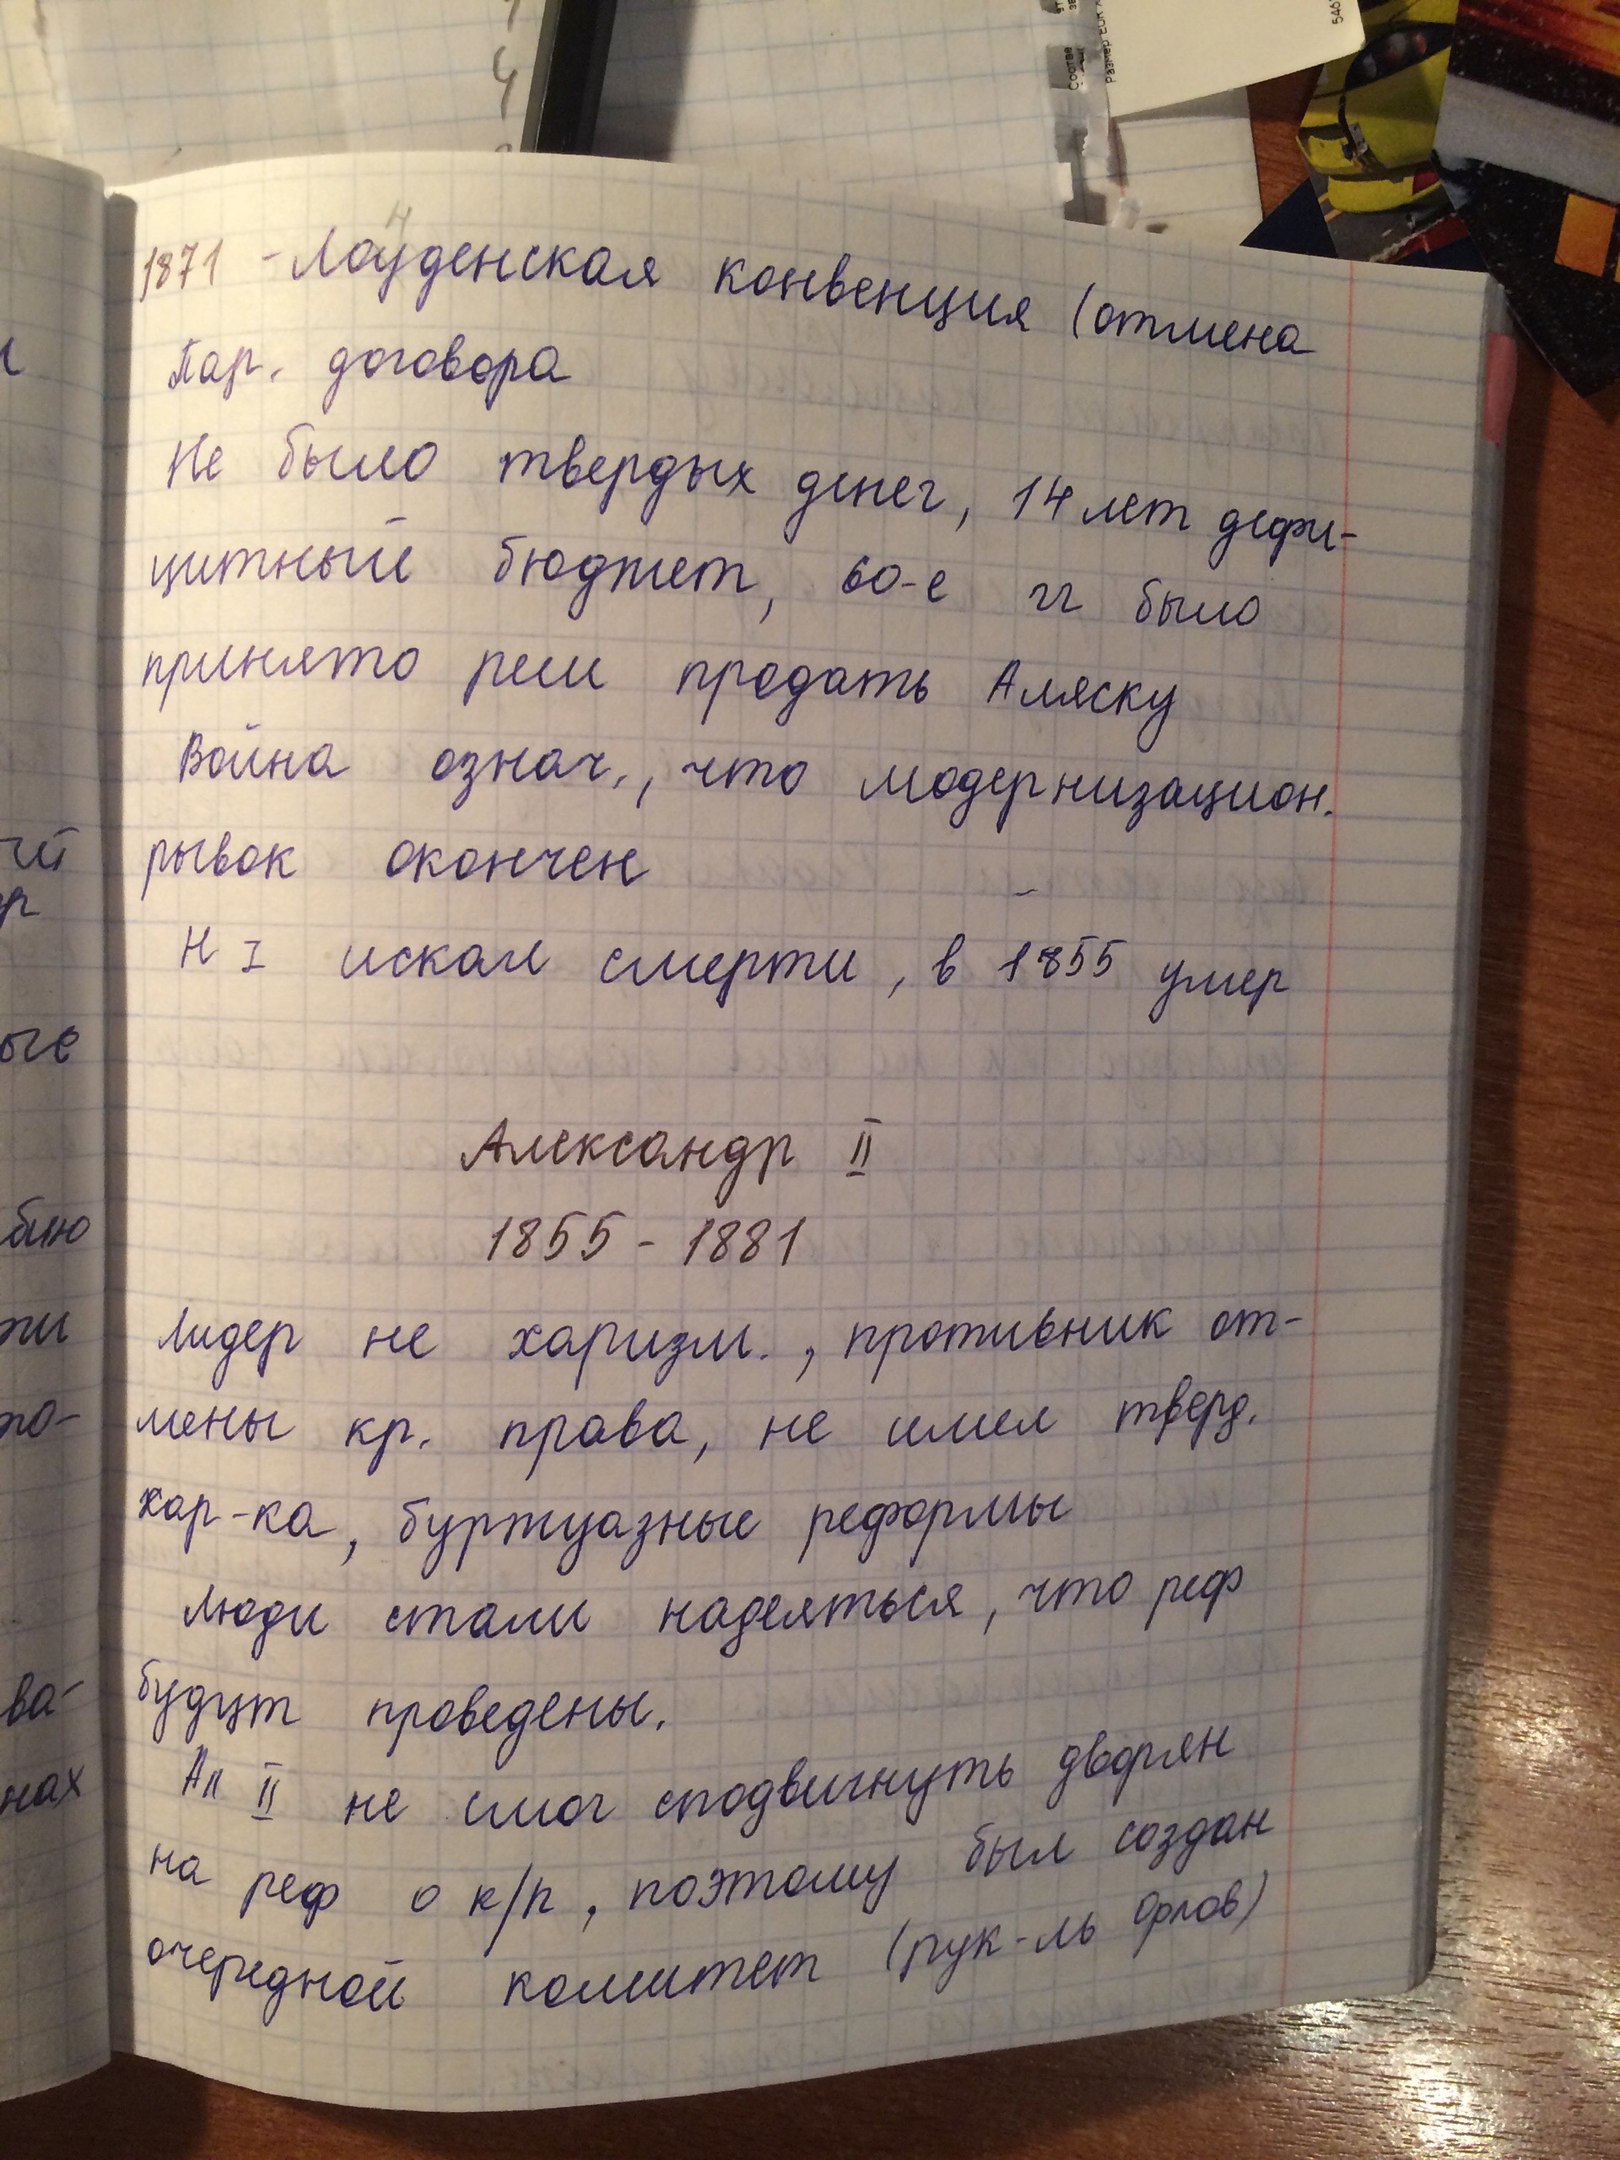 1871 - Лоуденская конвенция (отмена
Пар. договора
Не было твердых денег, 14 лет дефи-
цитный бюджет, 60-е гг было
принято реш продать Аляску
Война означ., что модернизацион.
рывок окончен
Н I искал смерти, в 1855 умер
Александр II
1855 - 1881
Лидер не харизм., противник от-
мены кр. права, не имел тверд.
хар-ка, буржуазные реформы
Люди стали надеяться, что реф
будут проведены.
Ал II не смог сподвигнуть дворян
на реф о к/п, поэтому был создан
очередной комитет (рук-ль Орлов)